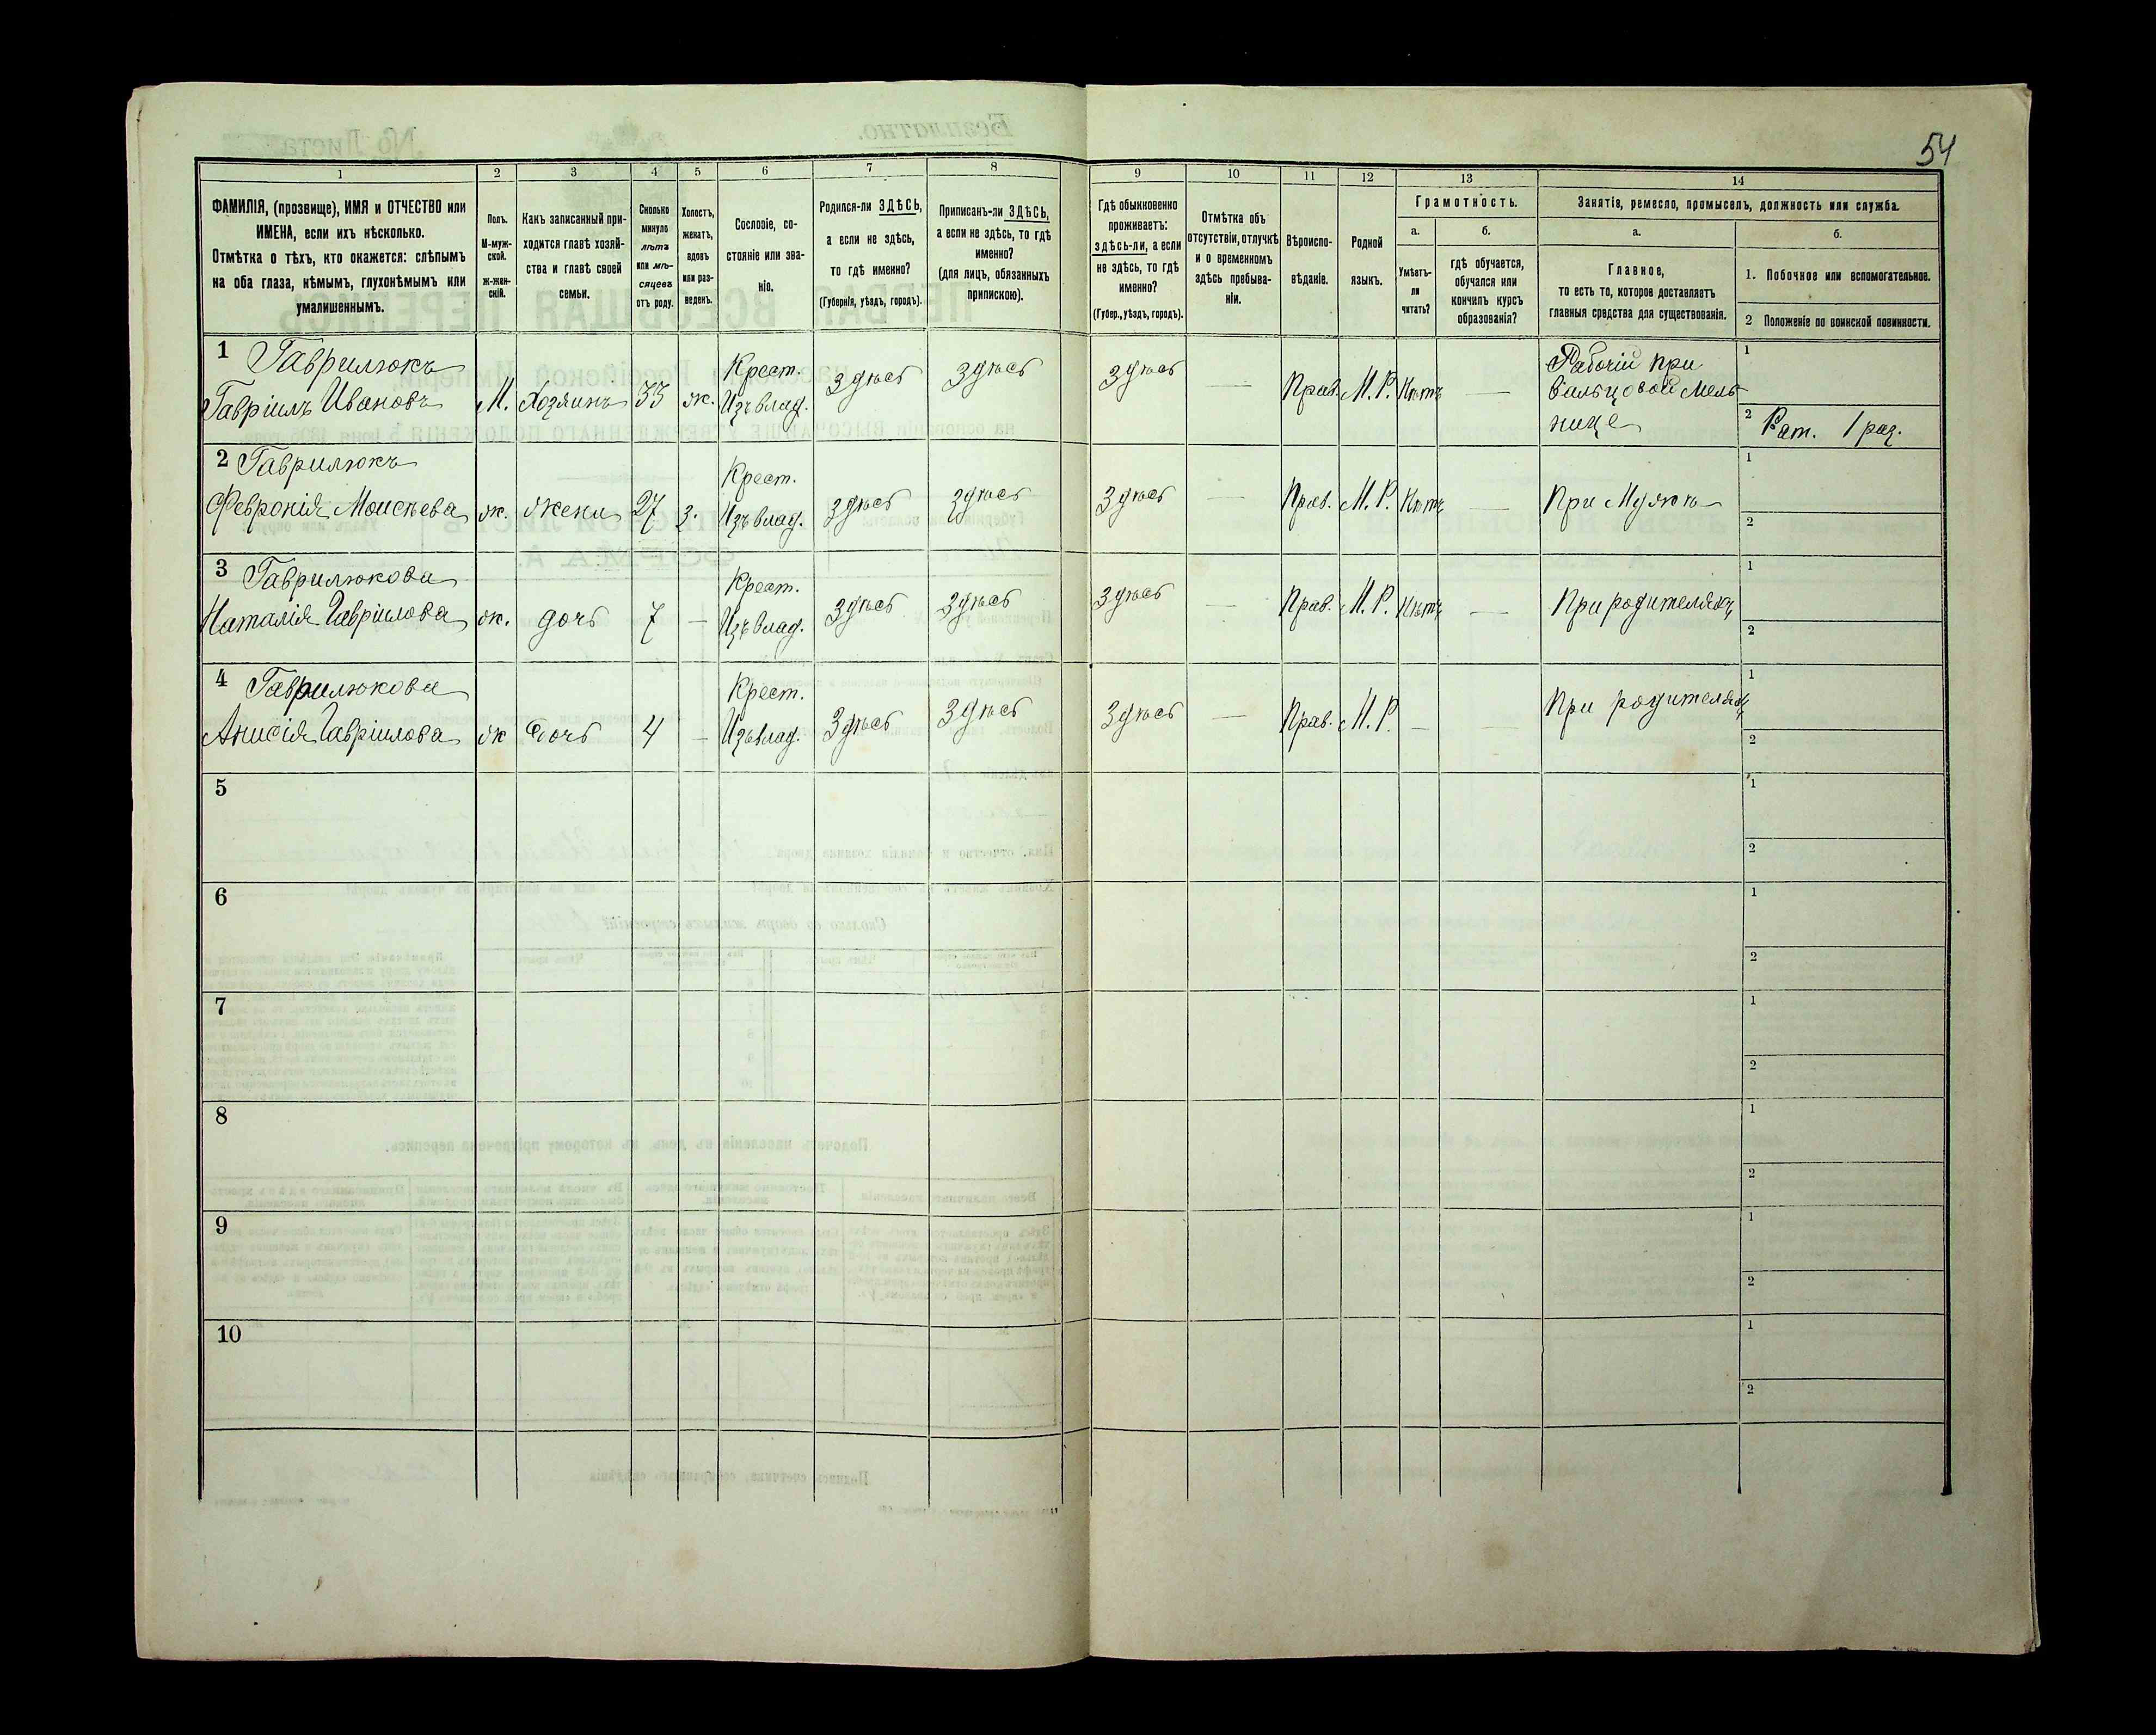 54
1
2
3
4
5
6
7
8
9
10
11
12
13
14
ФАМИЛІЯ, (прозвище), ИМЯ и ОТЧЕСТВО или
ИМЕНА, если ихъ нѣсколько.
Отмѣтка о тѣхъ, кто окажется: слѣпымъ
на оба глаза, нѣмымъ, глухонѣмымъ или
умалишеннымъ.
Полъ.
М-муж-
ской.
ж-жен-
скій.
Какъ записанный при-
ходится главѣ хозяй-
ства и главѣ своей
семьи.
Сколько
минуло
лѣтъ
или мѣ-
сяцевъ
отъ роду.
Холостъ,
женатъ,
вдовъ
или раз-
веденъ.
Сословіе, со-
стояніе или зва-
ніе.
Родился-ли ЗДѢСЬ,
а если не здѣсь,
то гдѣ именно?
(Губернія, уѣздъ, городъ).
Приписанъ-ли ЗДѢСЬ,
а если не здѣсь, то гдѣ
именно?
(для лицъ, обязанныхъ
припискою).
Гдѣ обыкновенно
проживаетъ:
здѣсь-ли, а если
не здѣсь, то гдѣ
именно?
(Губер., уѣздъ, городъ).
Отмѣтка объ
отсутствіи, отлучкѣ
и о временномъ
здѣсь пребыва-
ніи.
Вѣроиспо-
вѣданіе.
Родной
языкъ.
Грамотность.
а.
Умѣетъ-
ли
читать?
б.
гдѣ обучается,
обучался или
кончилъ курсъ
образованія?
Занятіе, ремесло, промыселъ, должность или служба.
а.
Главное,
то есть то, которое доставляетъ
главныя средства для существованія.
б.
1. Побочное или вспомогательное.
2 Положеніе по воинской повинности.
1 Гаврилюкъ
Гавріилъ Ивановъ
М.
Хозяинъ
33
ж.
Крест.
Изъ влад.
Здѣсь
Здѣсь
Здѣсь
—
Прав.
М.Р.
Нѣтъ
—
Рабочій при
вальцовой мель-
ницѣ
1
2 Рат. 1 раз.
2 Гаврилюкъ
Февронія Моисѣева
ж.
Жена
27
з.
Крест.
Изъ влад.
Здѣсь
Здѣсь
Здѣсь
—
Прав.
М.Р.
Нѣтъ
—
При мужѣ
1
2
3 Гаврилюкова
Наталія Гавріилова
ж.
дочь
7
—
Крест.
Изъ влад.
Здѣсь
Здѣсь
Здѣсь
—
Прав.
М.Р.
Нѣтъ
—
При родителяхъ
1
2
4 Гаврилюкова
Анисія Гавріилова
ж
Дочь
4
—
Крест.
Изъ влад.
Здѣсь
Здѣсь
Здѣсь
—
Прав.
М.Р.
—
—
При родителяхъ
1
2
5
1
2
6
1
2
7
1
2
8
1
2
9
1
2
10
1
2